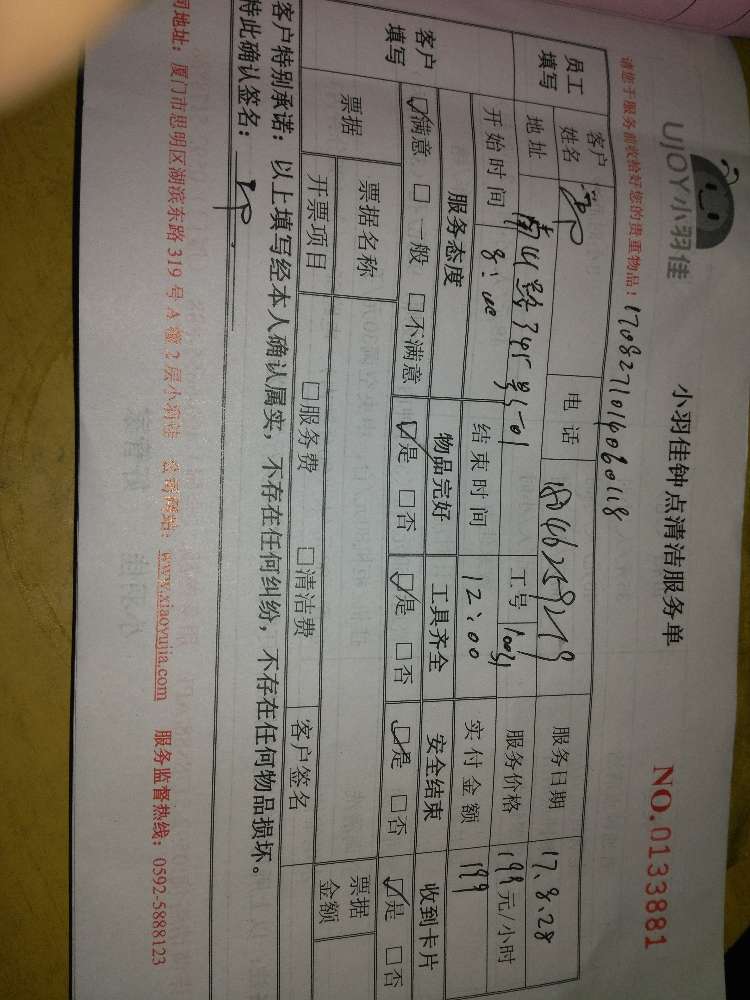 UJOY小羽佳
小羽佳钟点清洁服务单
NO.0133881
请您于服务前收拾好您的贵重物品!
员工填写
客户姓名
电话
服务日期 17.8.28
地址
工号
服务价格 199 元/小时
开始时间 8:00
结束时间 12:00
实付金额 199
客户填写
服务态度 物品完好 工具齐全 安全结束 收到卡片
☑满意 □一般 □不满意 ☑是 □否 ☑是 □否 ☑是 □否 ☑是 □否
票据
票据名称
开票项目 □服务费 □清洁费
客户签名
票据金额
客户特别承诺:以上填写经本人确认属实,不存在任何纠纷,不存在任何物品损坏。
特此确认签名:
司地址:厦门市思明区湖滨东路 319 号 A 栋 2 层小羽佳 公司网站:www.xiaoyujia.com 服务监督热线:0592-5888123